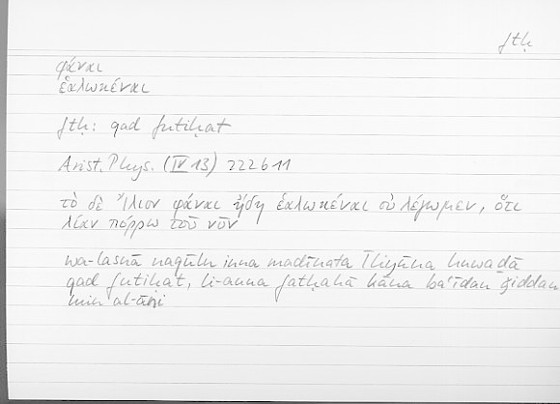 ftḥ
φάναι
ἑαλωκέναι
ftḥ: qad futiḥat
Arist. Phys. (IV 13) 222b11
τὸ δὲ Ἴλιον φάναι ἤδη ἑαλωκέναι οὐ λέγομεν, ὅτι
λίαν πόρρω τοῦ νῦν
wa-lasnā naqūlu inna madīnata Īliyūna huwaḏā
qad futiḥat, li-anna fatḥahā kāna baʿīdan ǧiddan
min al-āni